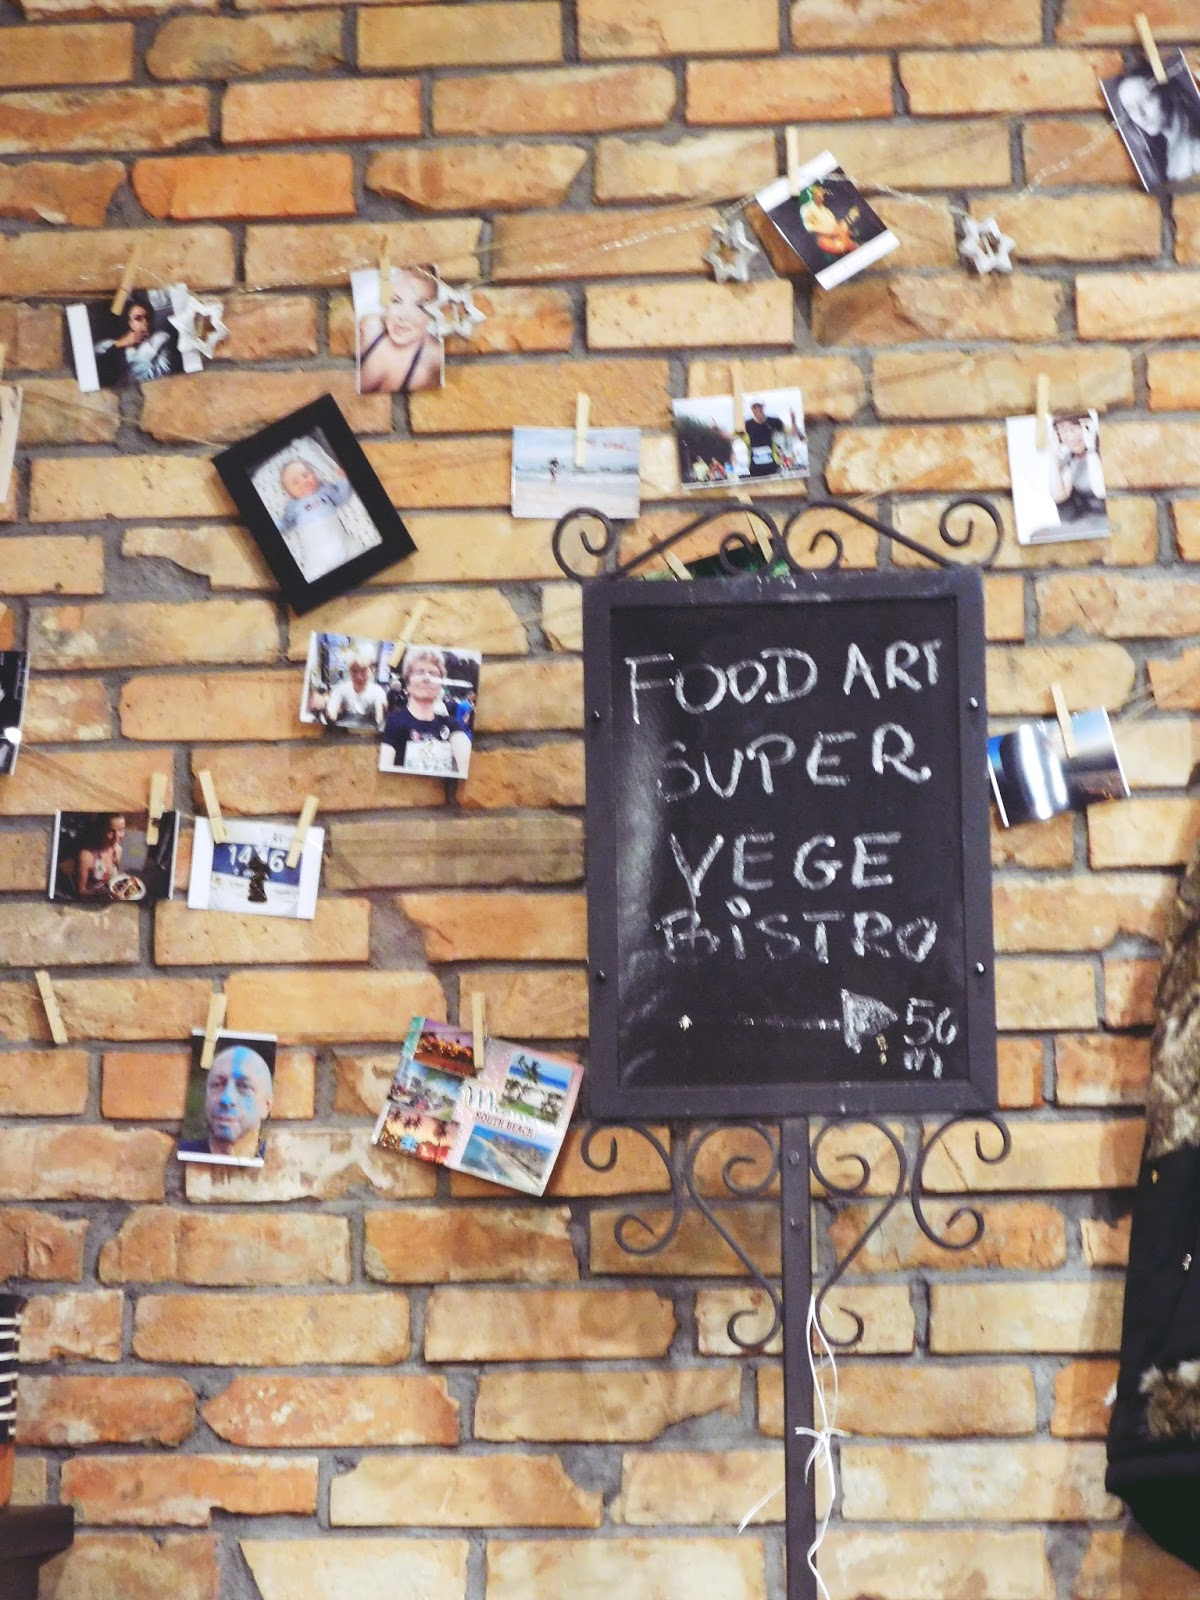 FOOD ART
SUPER
VEGE
BISTRO
50
m
SOUTH BEACH